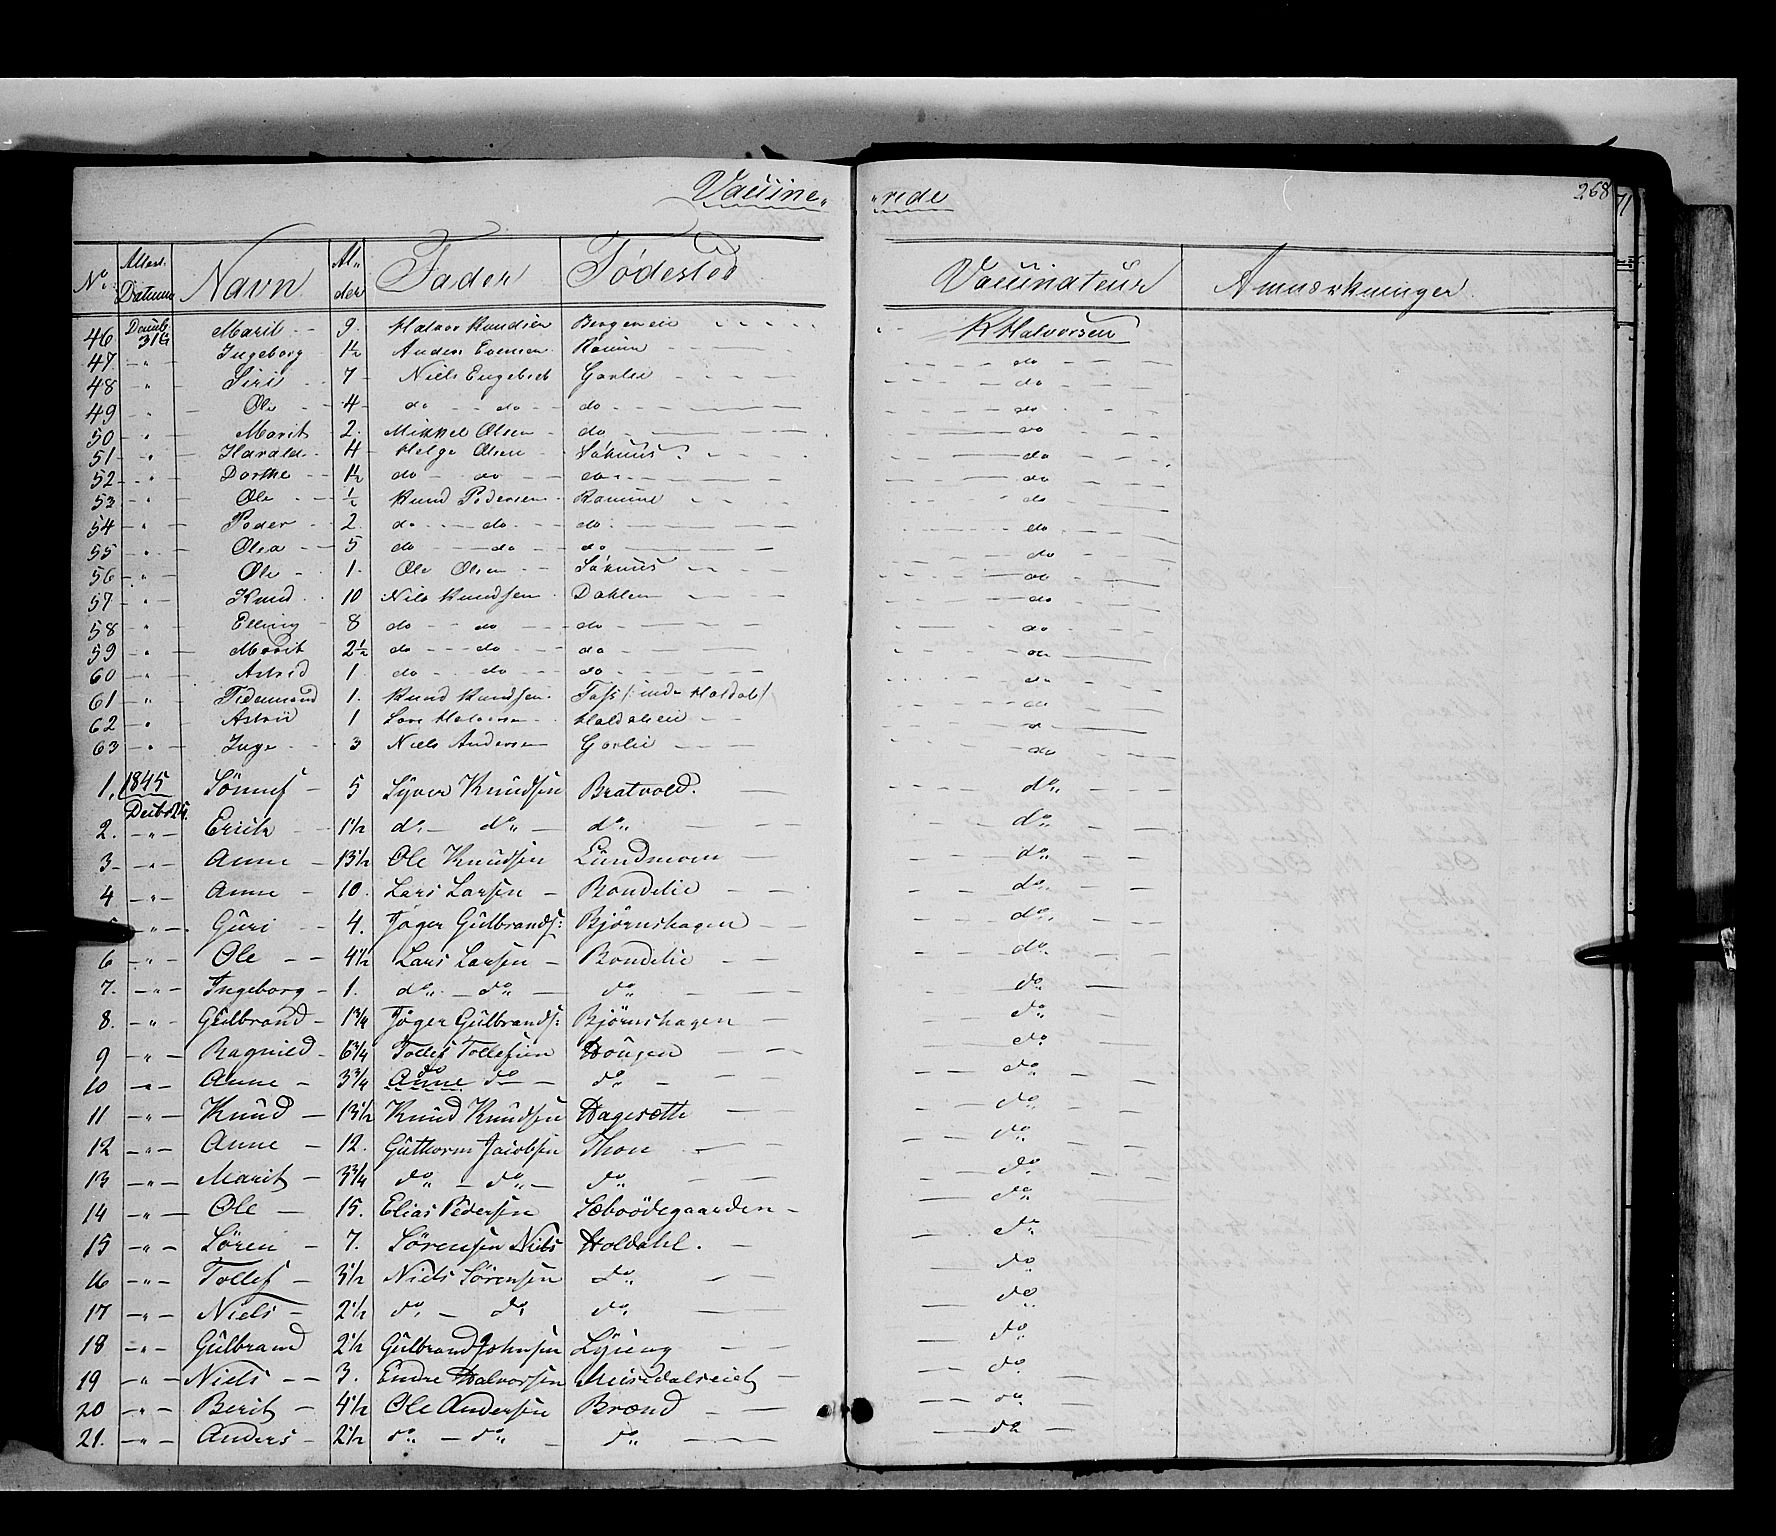 Vaccine„ „rede
268
No Attest. Datum Navn Al„der Fader Fødested Vaccinateur Anmærkninger
46 Decmb. 31te Marit 9. Halvor Knudsen K Halvorsen
47 " Ingeborg 1½ Anders Evensen do
48 " Siri 7 Niels Engebret Garlie do
49 " Ole 4 do do do do
50 " Marit 2. Mikkel Olsen do do
51 " Harald 4 Helge Olsen do
52 " Dorthe 1½ do do do do
53 " Ole ½ Knud Pedersen do
54 " Peder 2. do do do do
55 " Olea 5 do do do do
56 " Ole 1. Ole Olsen do
57 " Knud 10 Nils Knudsen Dahlen do
58 " Elling 8 do do do do
59 " Marit 2½ do do do do
60 " Astrid 1 do do do do
61 " Tidemand 1. Knud Knudsen do
62 " 1 Lars Halvorsen do
63 " Inge 3 Niels Andersen Garlie do
1. 1845 Decbr 24. Sønnef 5 Syver Knudsen Bratvold. do„
2. " Erik 1½ do do„ do„ do„
3 " Anne 13½ Ole Knudsen Lundmoen do„
4 " Anne 10. Lars Larsen Rondelie do„
" Guri 4. Jøger Gulbrands: Bjørnshagen do„
6 " Ole 4½ Lars Larsen Rondelie do„
7. " Ingeborg 1. do„ do„ do„ do„
8. " Gulbrand 1¾ Jøger Gulbrands: Bjørnshagen do
9 " Ragnild 6¾ Tollef Tollefsen Hougen do
10 " Anne 3¾ Anne do do do„ do„
11 " Knud 13½ Knud Knudsen Hagesætte do„
12 " Anne 12. Guthorm Jacobsen Thon do„
13 " Marit 3¾ do„ do„ do„ do„
14 " Ole 15. Elias Pedersen Sæboødegaarden do„
15 " Søren 7. Sørensen Niels Holdahl. do
16 " Tollef 3½ Niels Sørensen do„ do
17 " Niels 2½ do„ do„ do„ do
18 " Gulbrand 2½ Gulbrand Johnsen do
19 " Niels 3. Endre Halvorsen do
20 " Berit 4½ Ole Andersen Brænd do„
21. " Anders 2½ do„ do„ do„ do